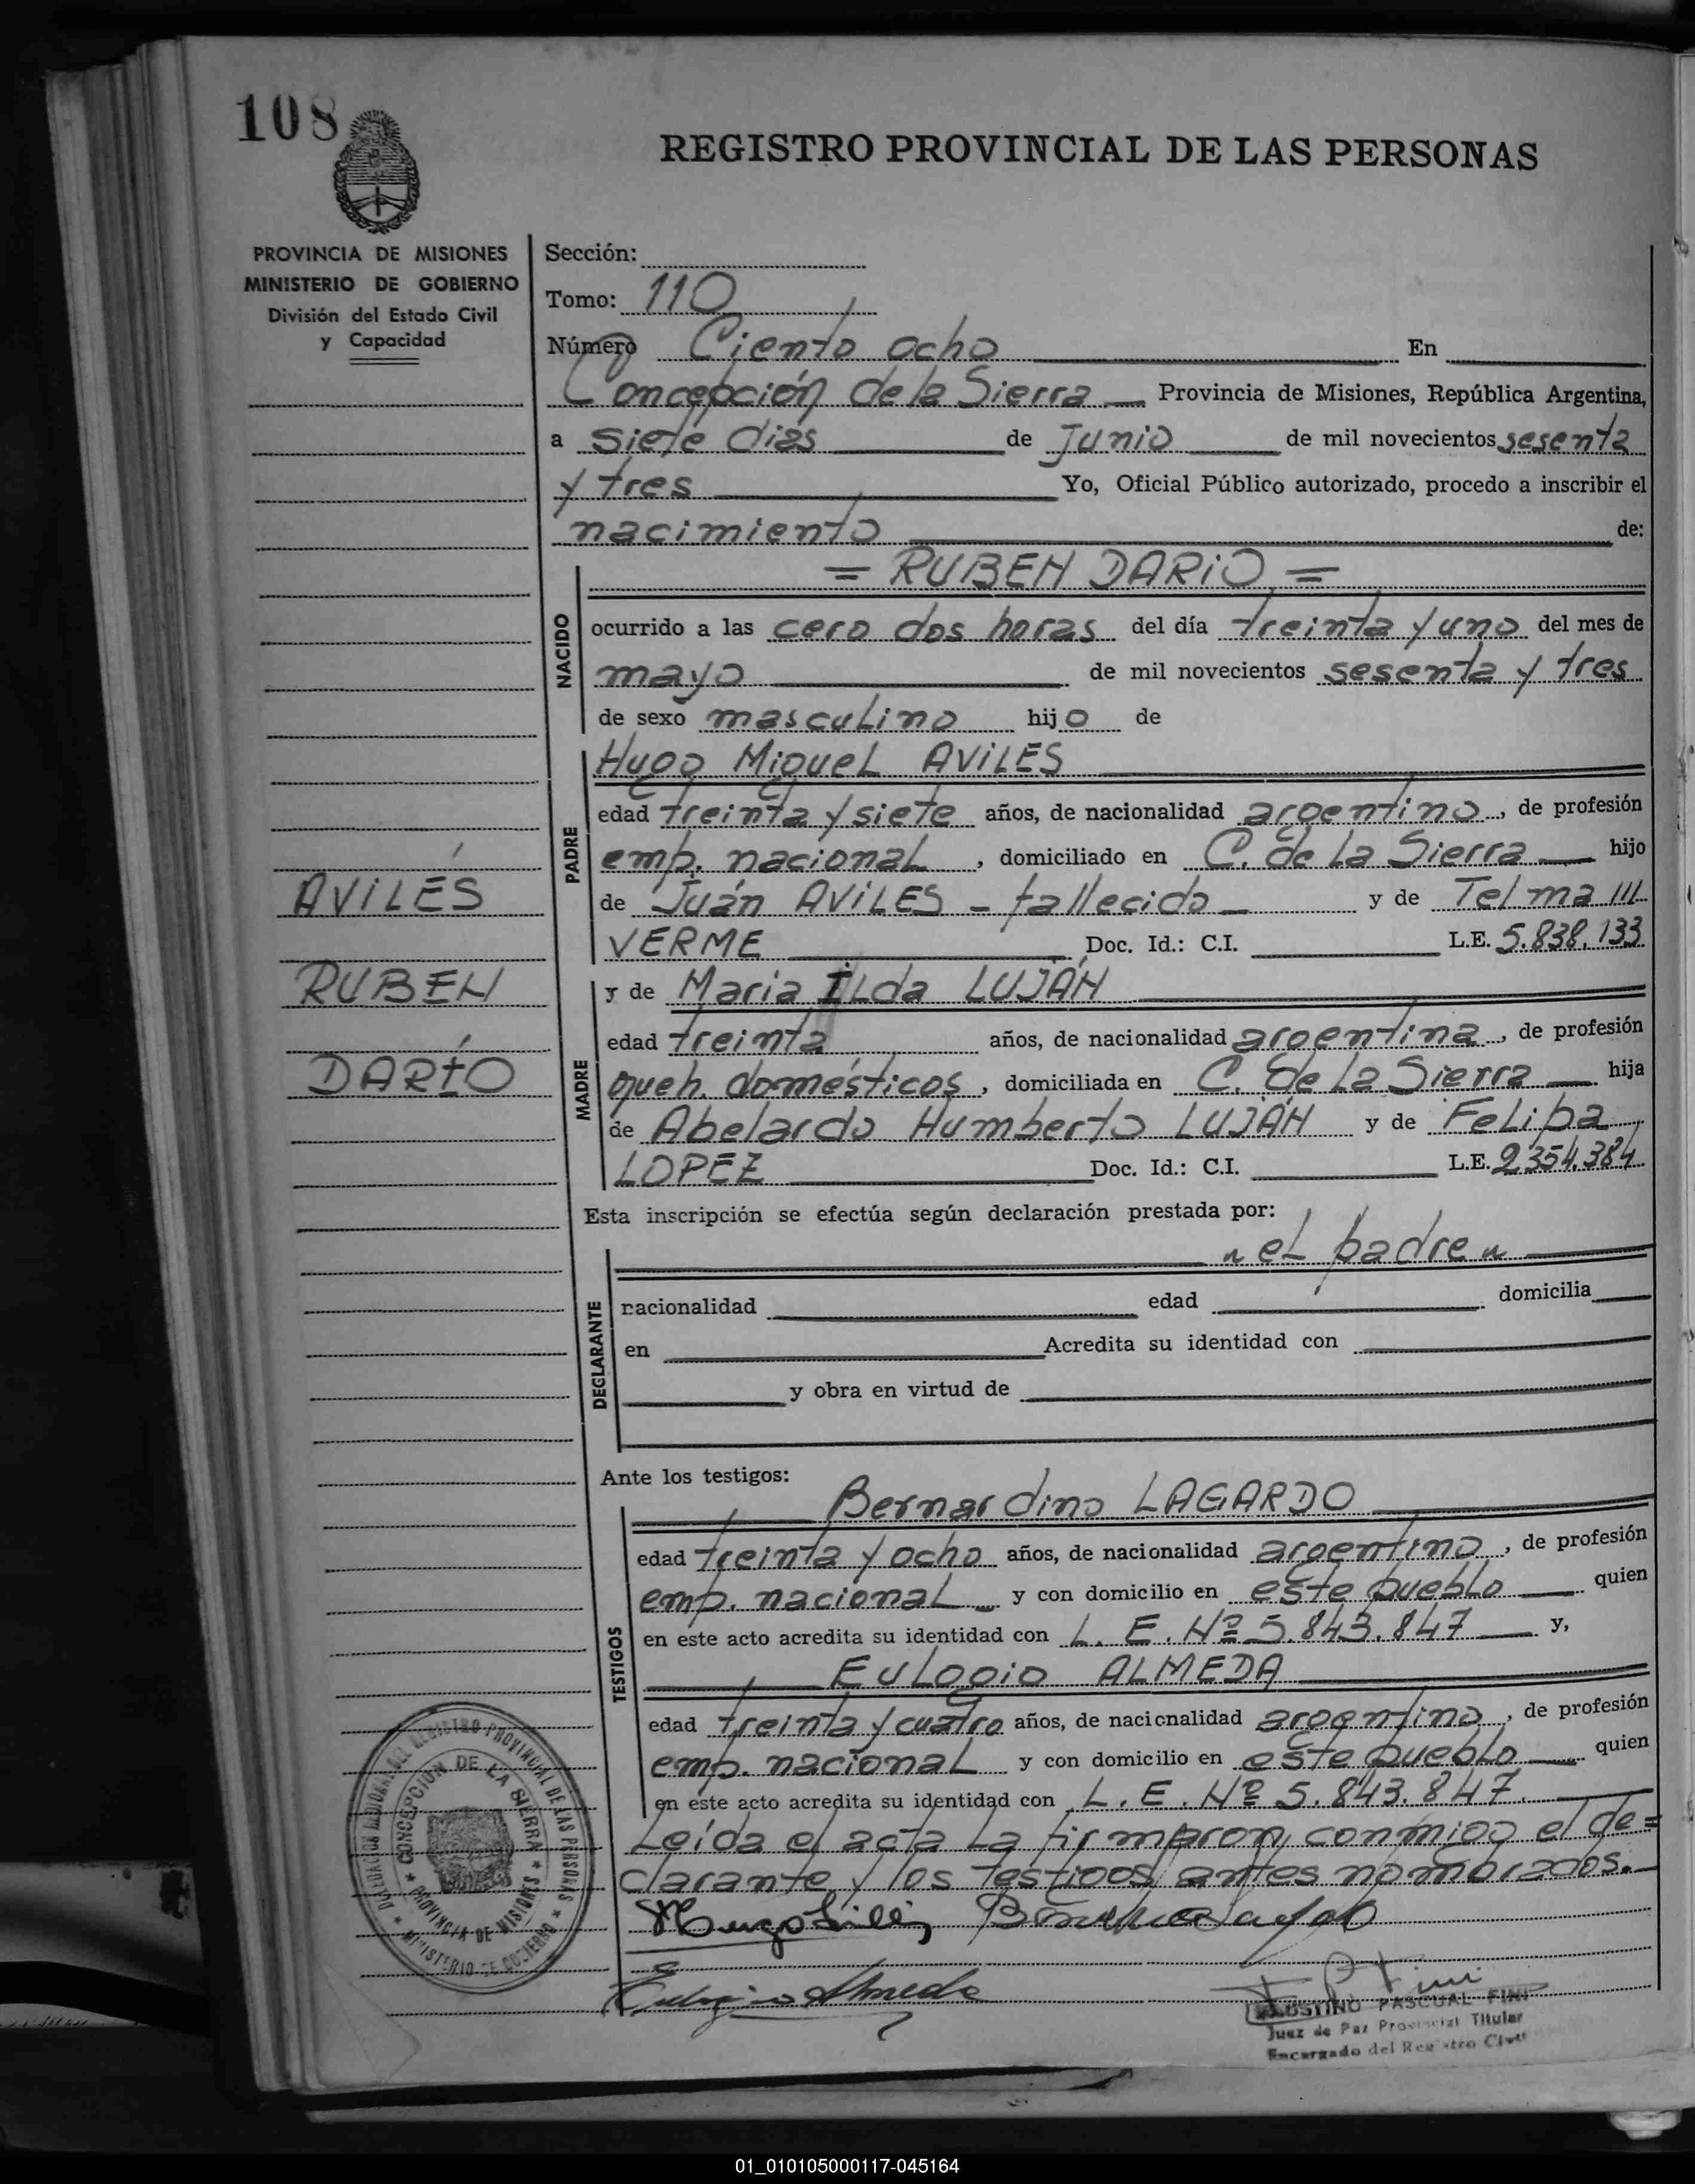 108
REGISTRO PROVINCIAL DE LAS PERSONAS
PROVINCIA DE MISIONES
MINISTERIO DE GOBIERNO
División del Estado Civil
y Capacidad
AVILÉS
RUBEN
DARÍO
Sección:
Tomo: 110
Número Ciento ocho En
Concepción de la Sierra Provincia de Misiones, República Argentina,
a siete dias de Junio de mil novecientos sesenta
y tres Yo, Oficial Público autorizado, procedo a inscribir el
nacimiento de:
= RUBEN DARiO =
NACIDO
ocurrido a las cero dos horas del día treinta y uno del mes de
mayo de mil novecientos sesenta y tres
de sexo masculino hijo de
PADRE
Hugo Miguel AViLES
edad treinta y siete años, de nacionalidad argentino, de profesión
emp. nacional, domiciliado en C. de la Sierra hijo
de Juán AViLES - fallecido - y de Telma M.
VERME Doc. Id.: C.I. L.E. 5.838.133
MADRE
y de Maria Ilda LUJÁN
edad treinta años, de nacionalidad argentina, de profesión
queh. domésticos, domiciliada en C. de la Sierra hija
de Abelardo Humberto LUJÁN y de Felipa
LOPEZ Doc. Id.: C.I. L.E. 2.354.384
Esta inscripción se efectúa según declaración prestada por:
" el padre "
DECLARANTE
nacionalidad edad domicilia
en Acredita su identidad con
y obra en virtud de
Ante los testigos:
TESTIGOS
Bernardino LAGARDO
edad treinta y ocho años, de nacionalidad argentino, de profesión
emp. nacional y con domicilio en este pueblo quien
en este acto acredita su identidad con L. E. Nº 5.843.847 y,
Eulogio ALMEDA
edad treinta y cuatro años, de nacionalidad argentino, de profesión
emp. nacional y con domicilio en este pueblo quien
en este acto acredita su identidad con L. E. Nº 5.843.847.
Leída el acta la firmaron conmigo el de=
clarante y los testigos antes nombrados.
Eulogio Almeda
FAUSTINO PASCUAL FINI
Juez de Paz Provincial Titular
Encargado del Registro Civil
DELEGACION REGIONAL DEL REGISTRO PROVINCIAL DE LAS PERSONAS
CONCEPCION DE LA SIERRA
PROVINCIA DE MISIONES
MINISTERIO DE GOBIERNO
01_010105000117-045164